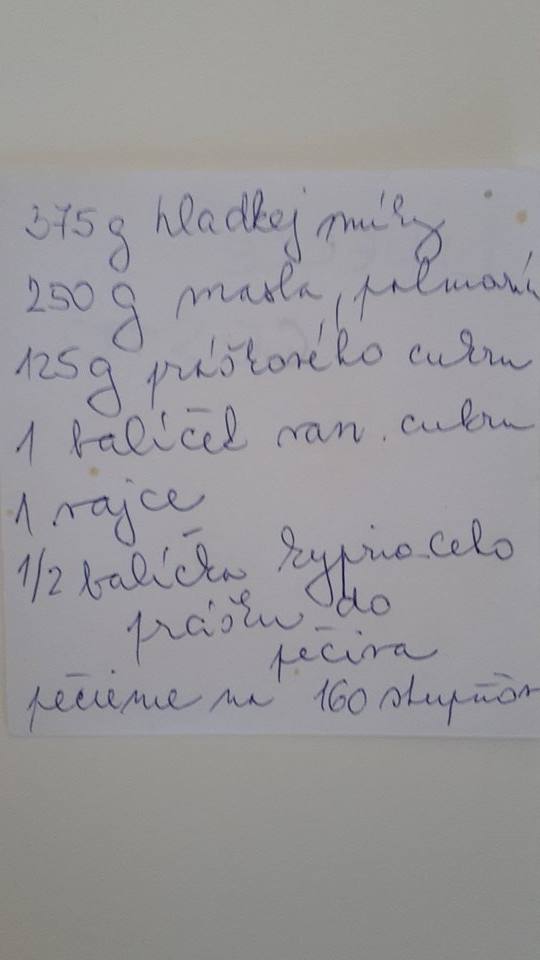 375g hladkej múky
250 g masla, palmarín
125g práškového cukru
1 balíček van. cukru
1 vajce
1/2 balíčka kypriaceho
prášku do
pečiva
pečieme na 160 stupňov